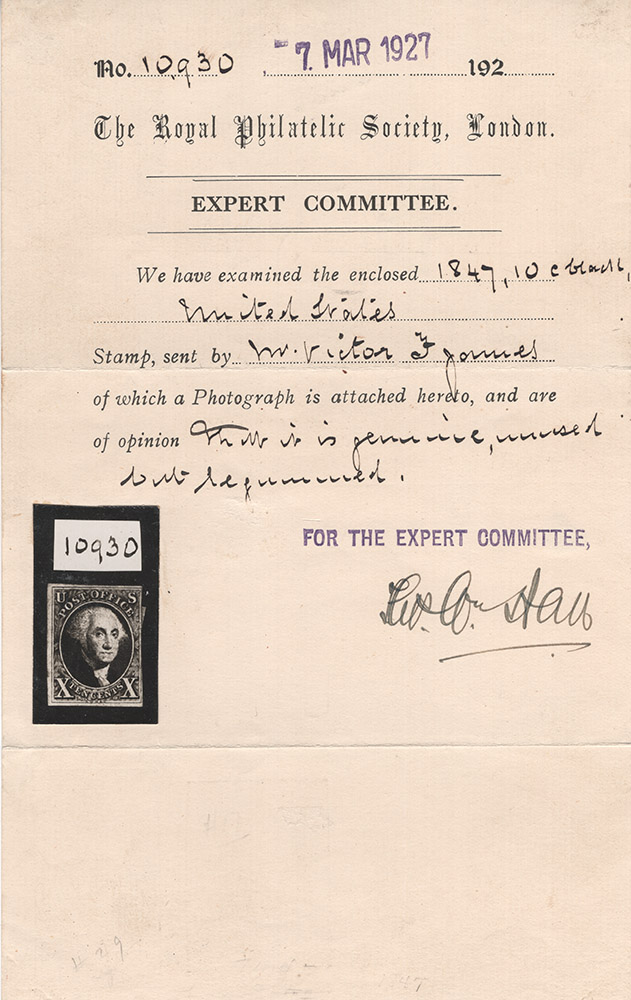 No. 10,930 -7. MAR 1927 192
The Royal Philatelic Society, London.
EXPERT COMMITTEE.
We have examined the enclosed 1847, 10 c black,
United States
Stamp, sent by Mr. Victor
of which a Photograph is attached hereto, and are
of opinion that it is genuine, unused
but regummed.
10930
FOR THE EXPERT COMMITTEE,
U S
POST OFFICE
X TEN CENTS X
Hall